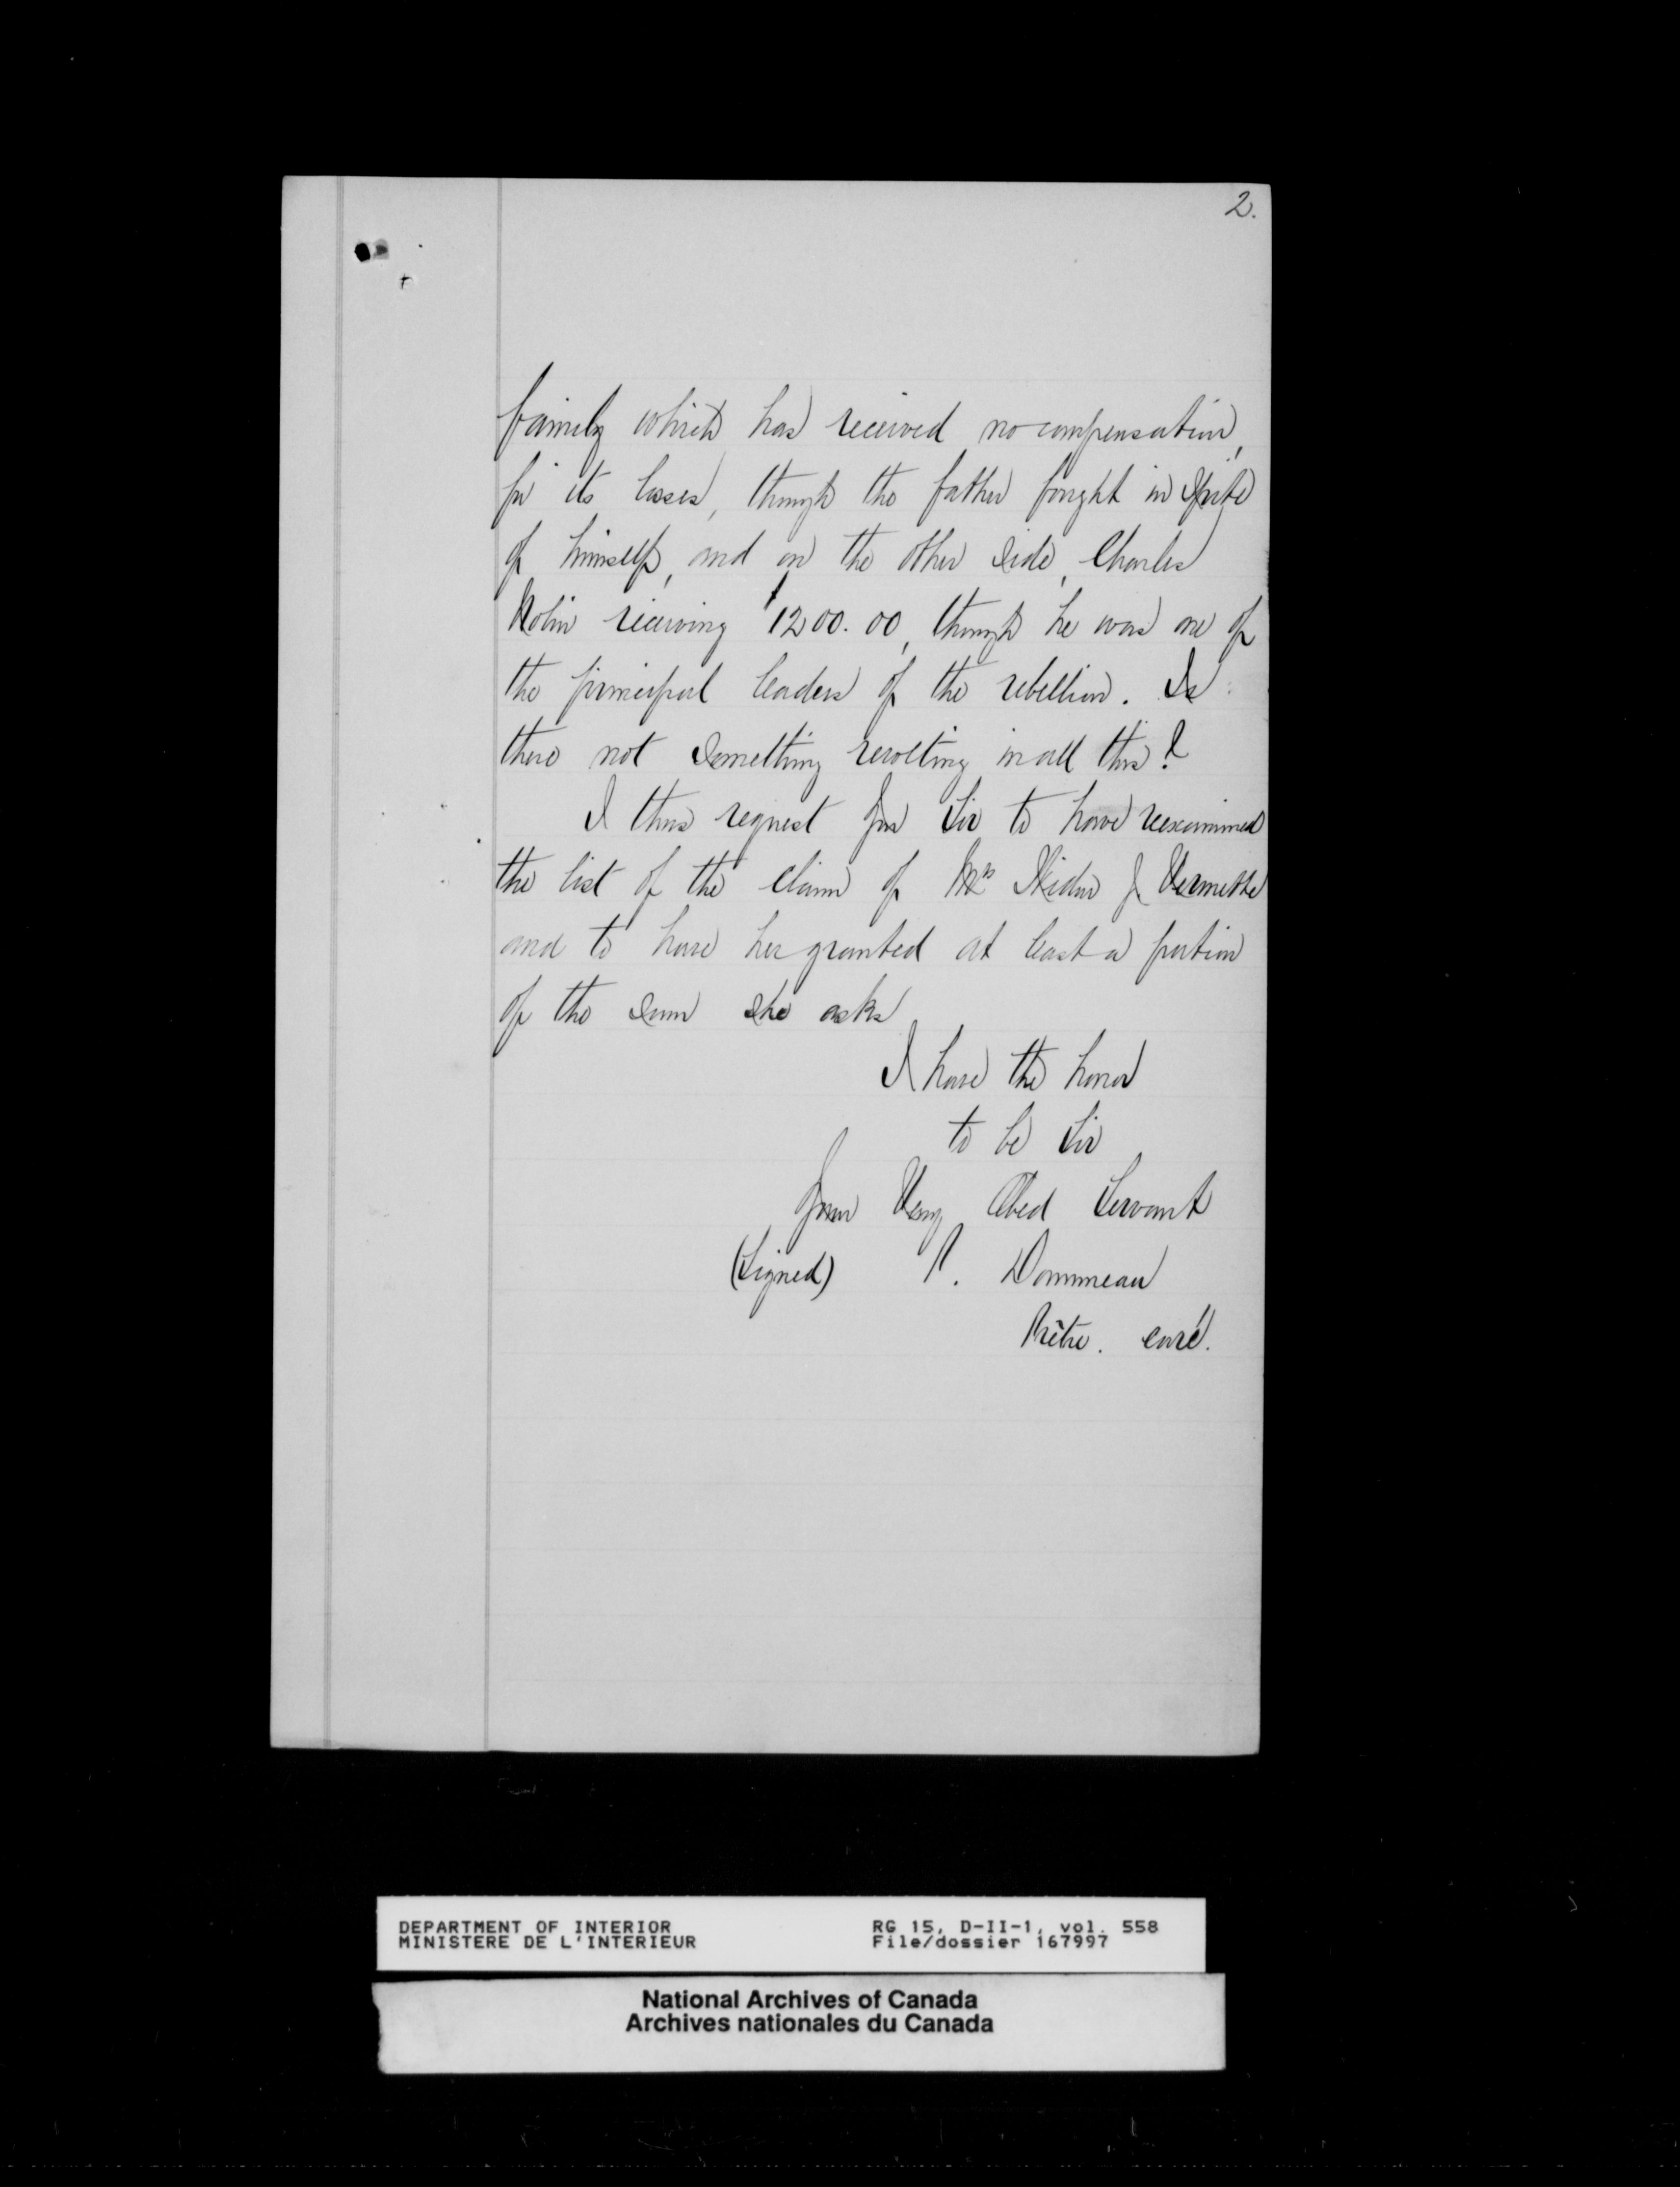 2.
family which has received no compensation,
for its losses, though the father fought in spite
of himself, and on the other side, Charles
Nolin receiving $1200.00, though he was one of
the principal leaders of the rebellion. Is
there not something revolting in all this?
I thus request you Sir to have reexamined
the list of the claim of Mrs Widow J Vermette
and to have her granted at least a portion
of the sum she asks
I have the honor
to be Sir
Your Very Obed Servant
(Signed) P. Dommeau
Prêtre. curé.
DEPARTMENT OF INTERIOR
MINISTERE DE L'INTERIEUR
RG 15, D-II-1, vol. 558
File/dossier 167997
National Archives of Canada
Archives nationales du Canada